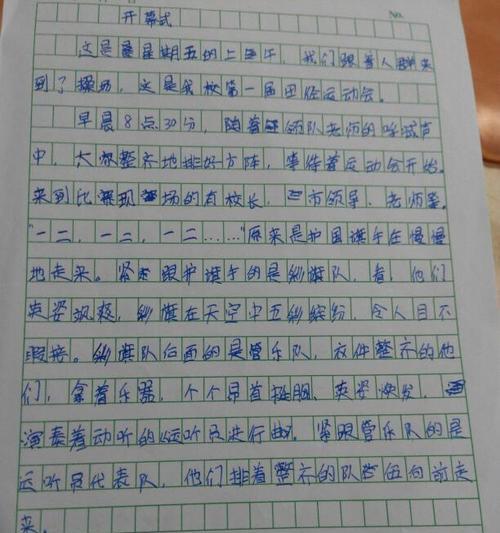 No.
开幕式
这是星期五的上午，我们跟着人群来
到了操场，这是我校第一届田径运动会。
早晨8点30分，随着领队老师的呼喊声
中，大家整齐地排好方阵，等待着运动会开始。
来到比赛现场的有校长，市领导、老师
“一二，一二，一二……”原来是护国旗手在慢慢
地走来。紧跟护旗手的是彩旗队，看，他们
英姿飒爽，彩旗在天空中五彩缤纷，令人目不
暇接。彩旗队后面的是管乐队，衣件整齐的他
们，拿着乐器，个个昂首挺胸、英姿焕发，
演奏着动听的《运动员进行曲。紧跟管乐队的是
运动员代表队，他们排着整齐的队伍向前走
来。